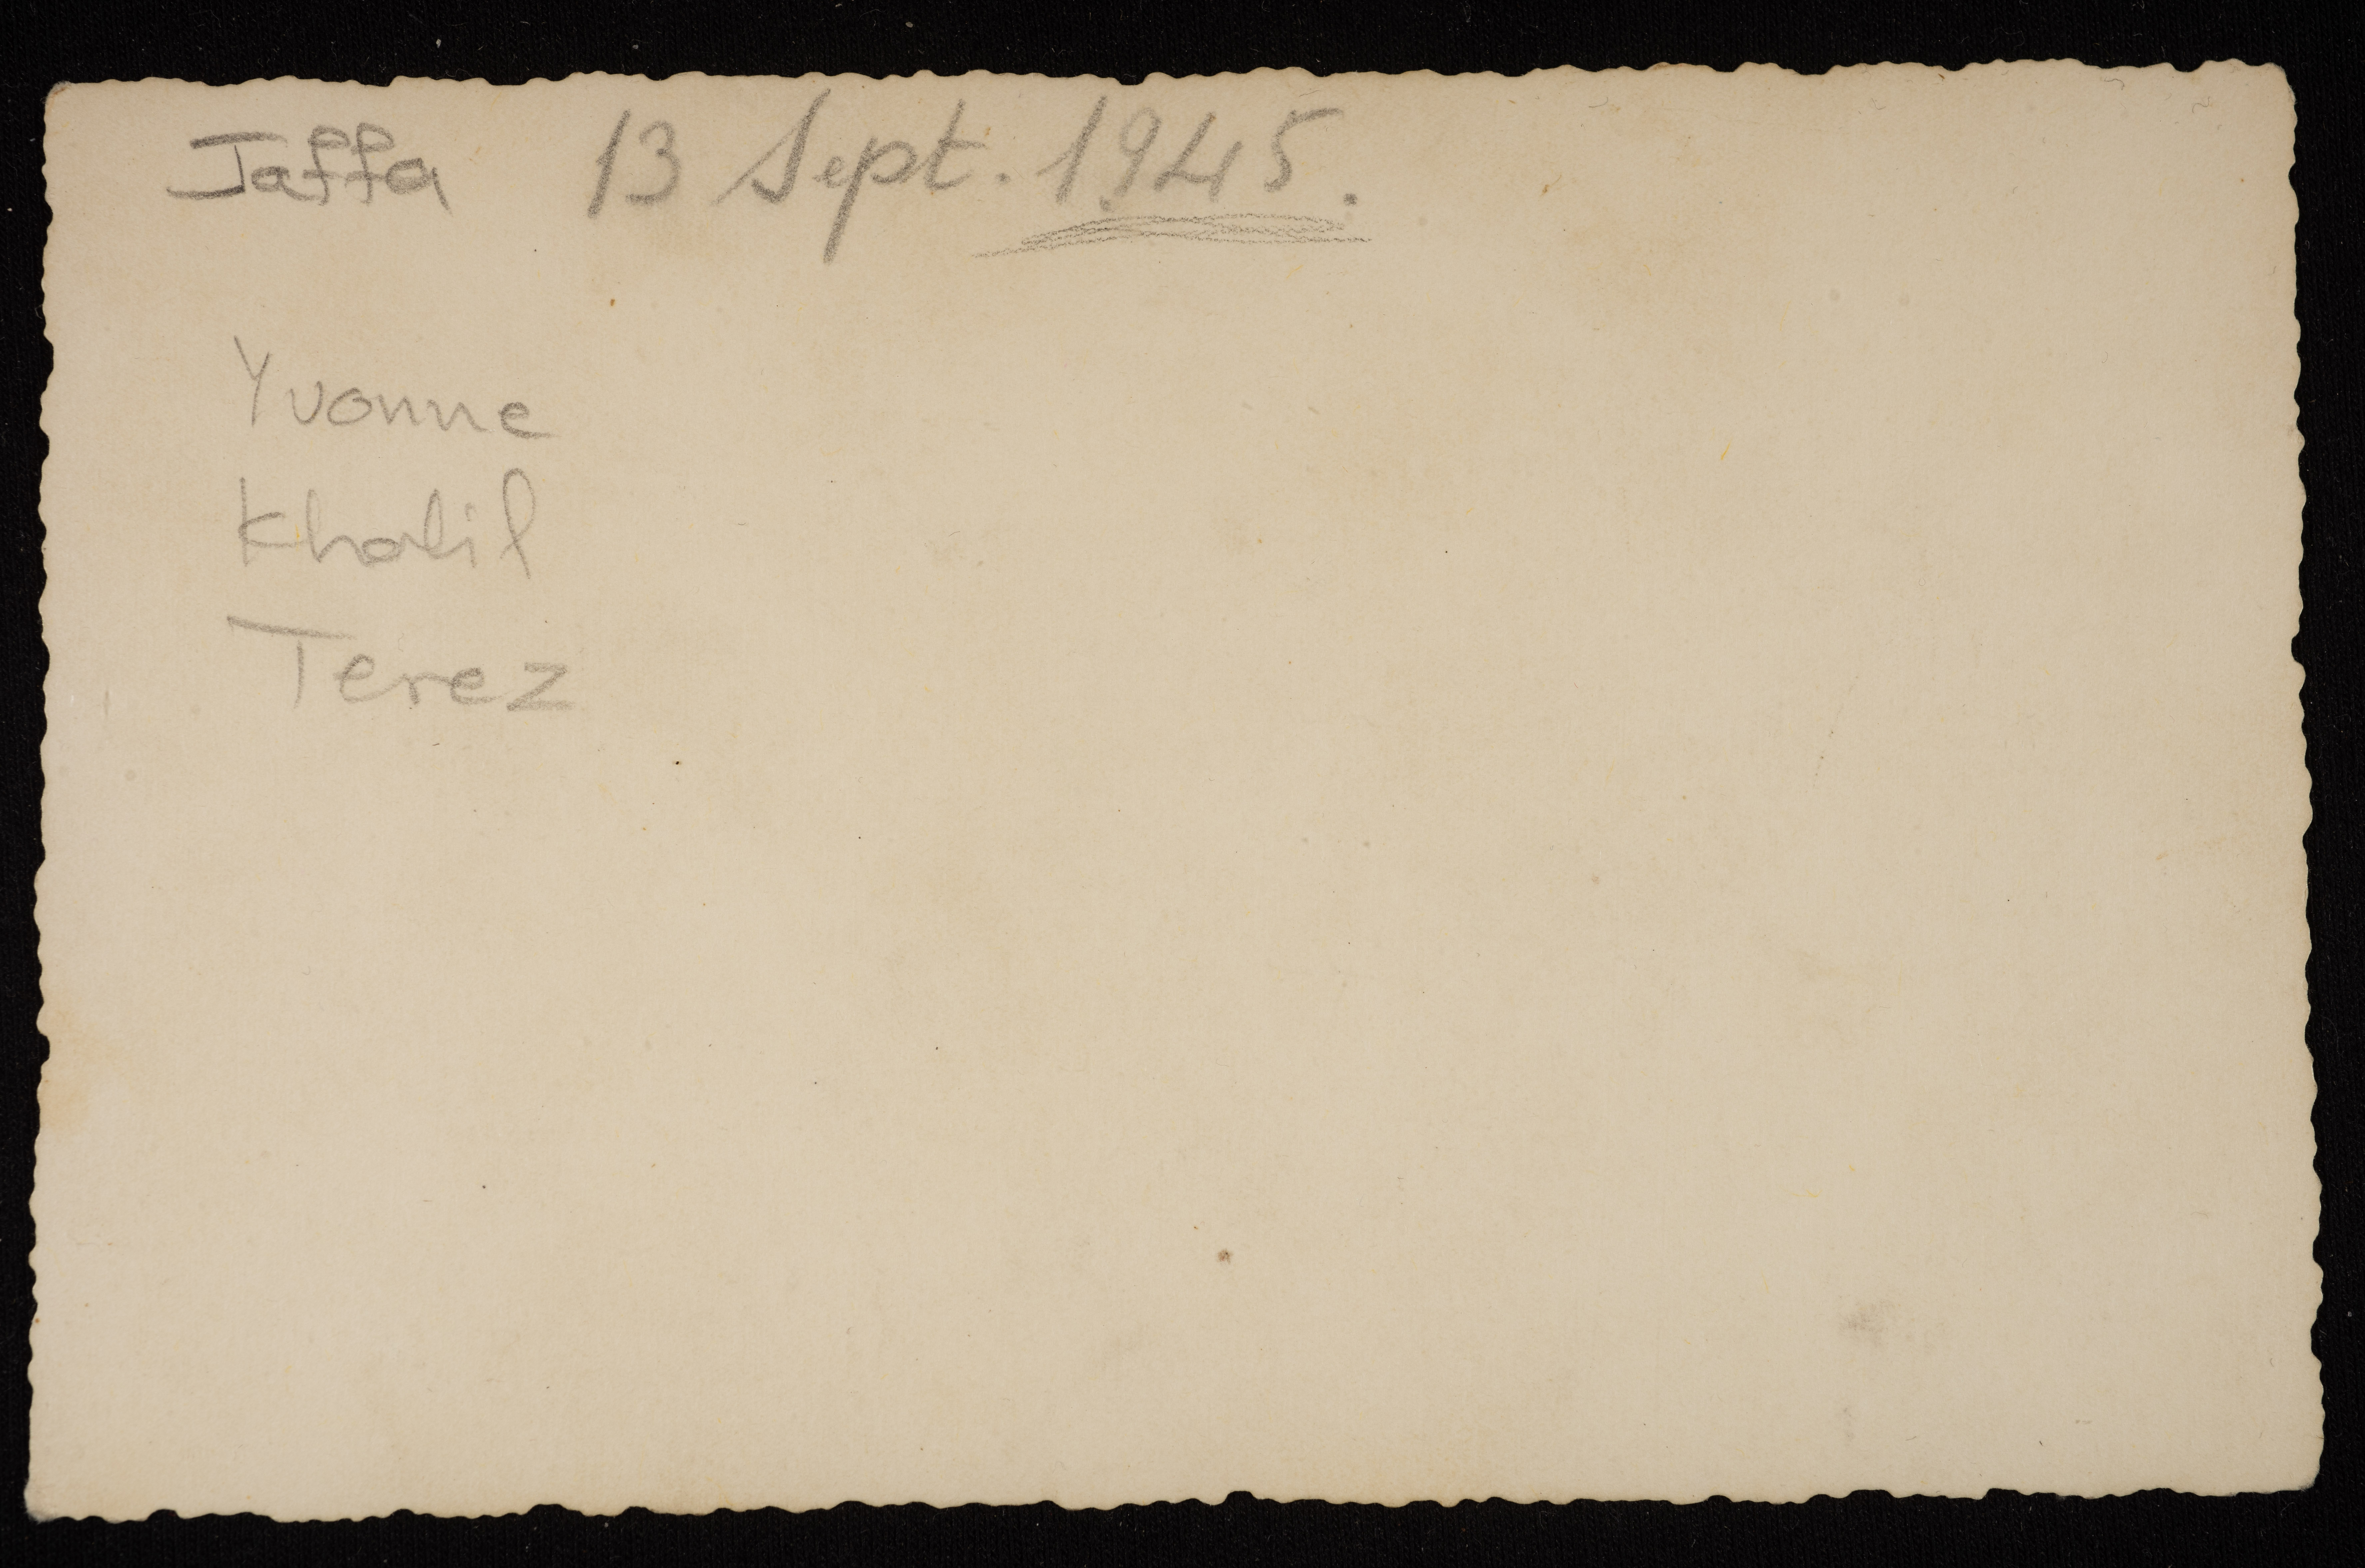 Jaffa 13 Sept. 1945.
Yvonne
Khalil
Terez